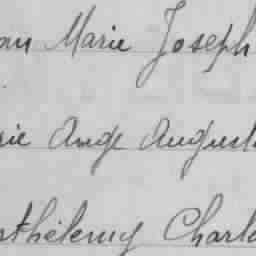 an Marie Joseph
rie Ange August
rthélemy Charl